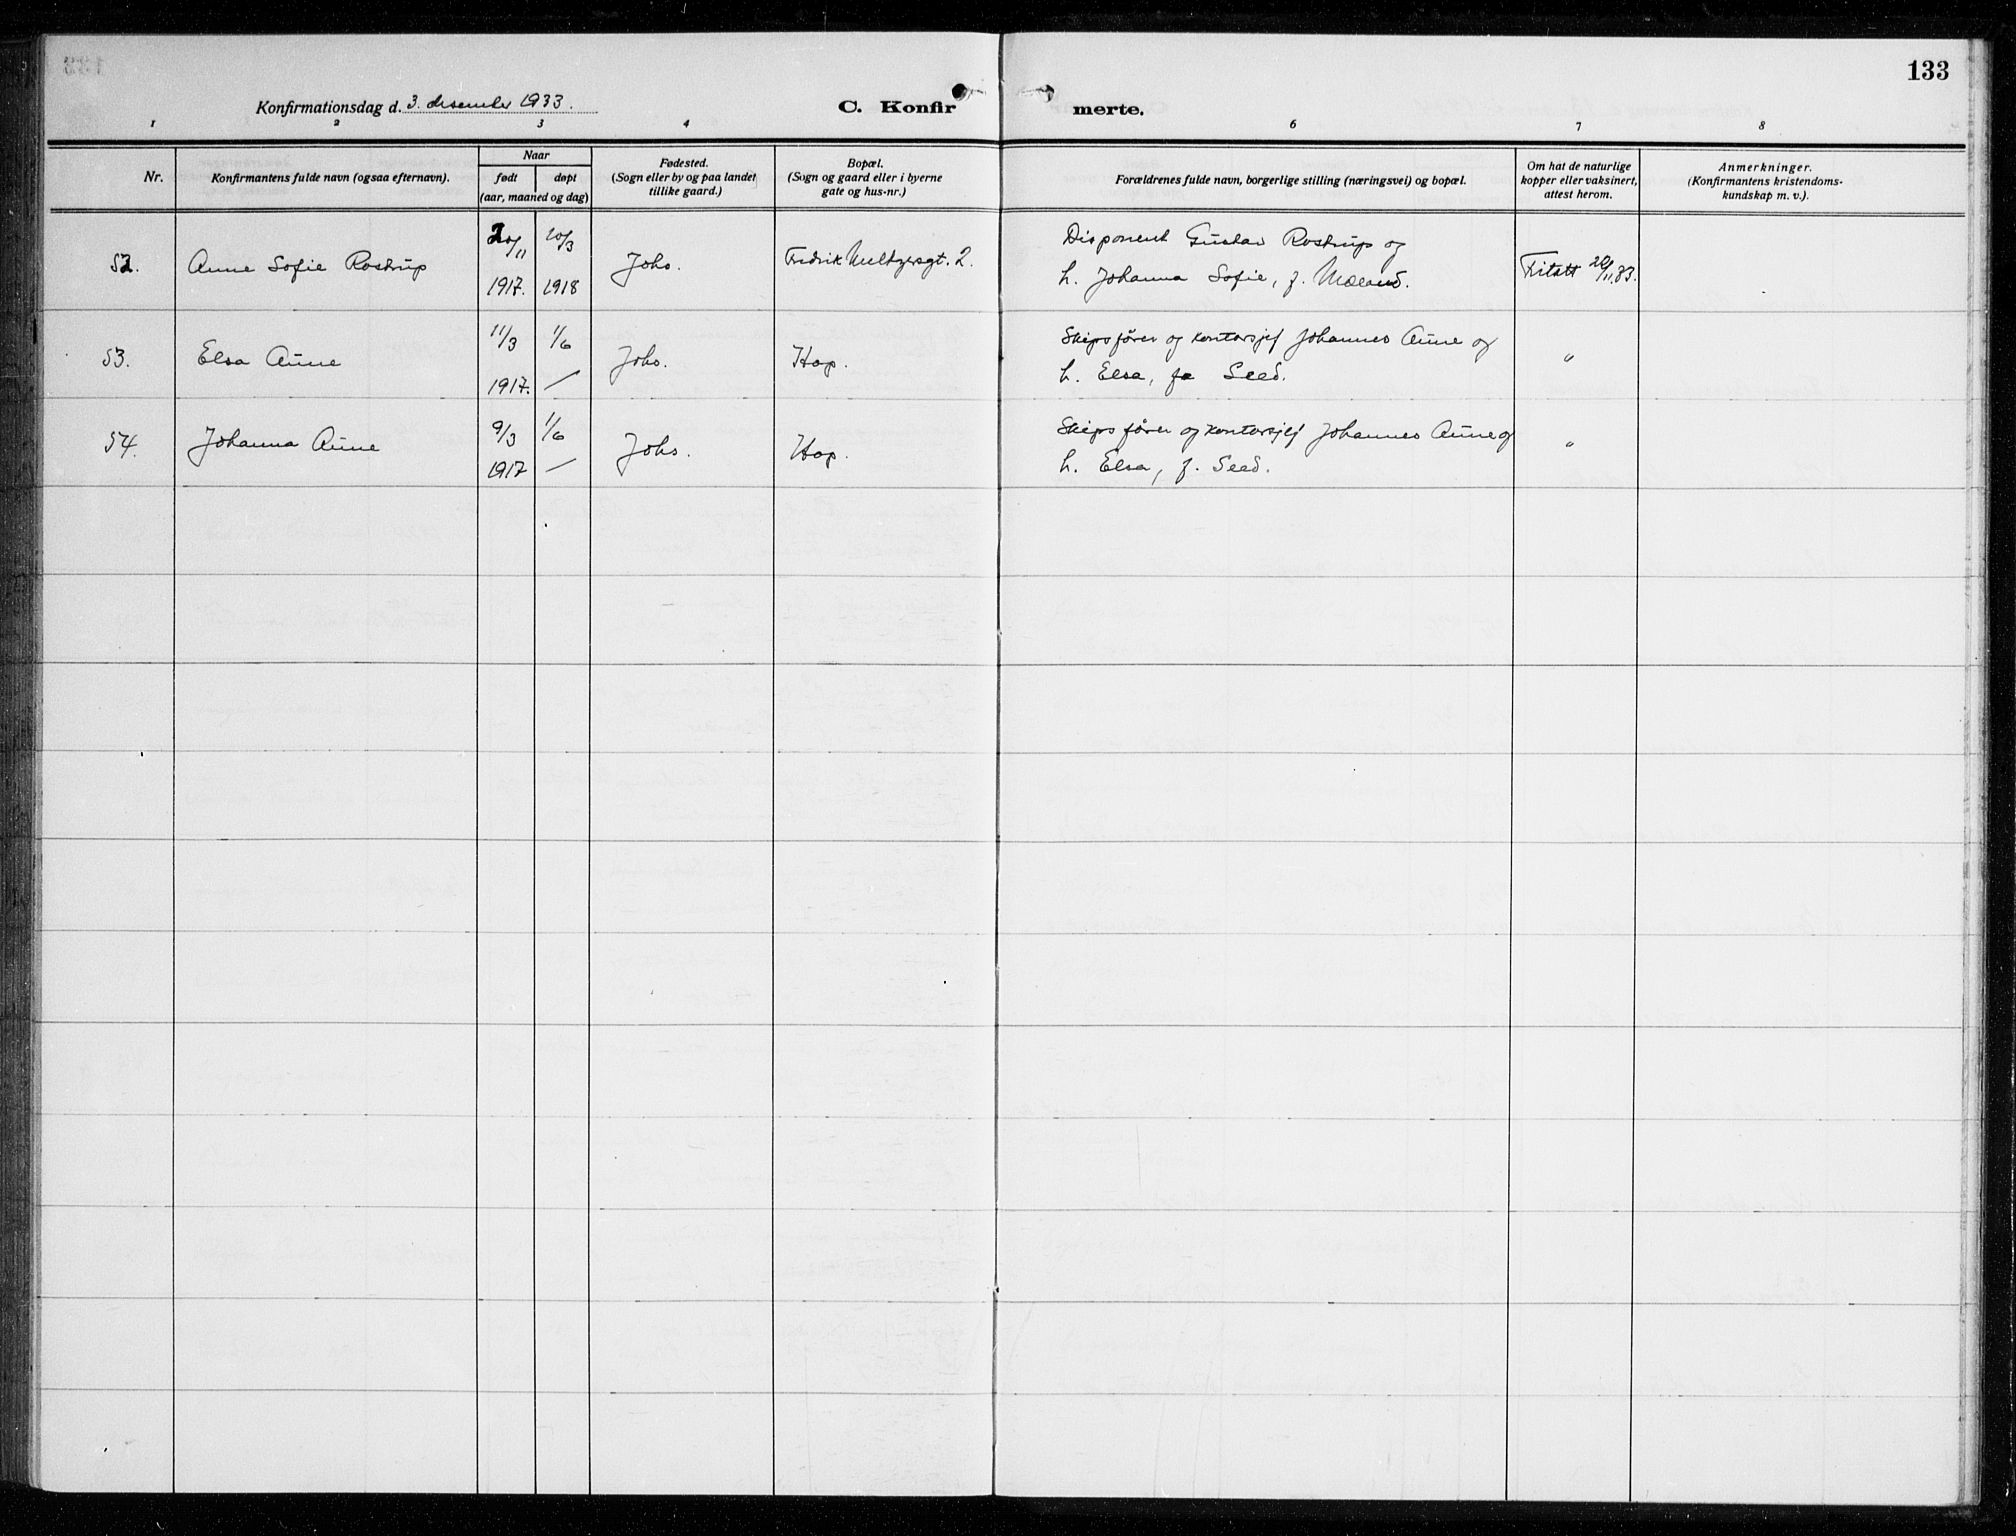 133
Konfirmationsdag d. 3. desember 1933.
C. Konfirmerte.
1 2 3 4 5 6 7 8
Nr.
Konfirmantens fulde navn (ogsaa efternavn).
Naar
født døpt
(aar, maaned og dag)
Fødested.
(Sogn eller by og paa landet
tillike gaard.)
Bopæl.
(Sogn og gaard eller i byerne
gate og hus-nr.)
Forældrenes fulde navn, borgerlige stilling (næringsvei) og bopæl.
Om hat de naturlige
kopper eller vaksinert,
attest herom.
Anmerkninger.
(Konfirmantens kristendoms-
kundskap m. v.).
52. Anne Sofie Rostrup 20/11 1917. 10/3 1918 Johs. Fredrik Meltzersgt. 2. Disponent Gustav Rostrup og
h. Johanna Sofie, f. Mæland. Fritatt 20/11.33.
53. Elsa Aune 11/3 1917. 1/6 — Johs. Hop. Skipsfører og kontorsjef Johannes Aune og
h. Elsa, f. Seed. "
54. Johanna Aune 9/3 1917 1/6 — Johs. Hop. Skipsfører og kontorsjef Johannes Aune og
h. Elsa, f. Seed. "